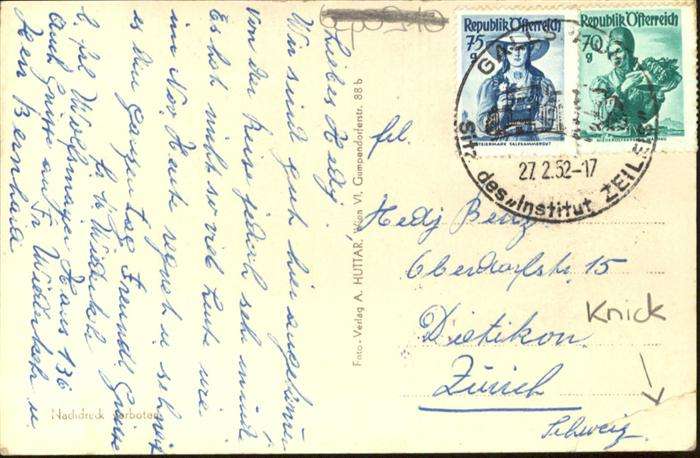 Republik Österreich
75
g
STEIERMARK SALZKAMMERGUT
Republik Österreich
70
g
GA
27. 2. 52-17
Sitz des "Institut ZEILEIS
Liebes Hedj!
Wir sind gut hier angekommen
von der Reise jedoch sehr müde
Es hat nicht so viel Leute wie
im Nov. Heute regnet u. schneit
es den ganzen Tag. Freundl. Grüsse
auch Grüsse an Fr. Widerkehr u.
Herr Bernhard
Foto - Verlag A. HUTTAR, Wien VI., Gumpendorferstr. 88 b
Nachdruck verboten
Frl.
Hedj Benz
Oberdorfstr. 15
Dietikon
Zürich
Schweiz
Knick